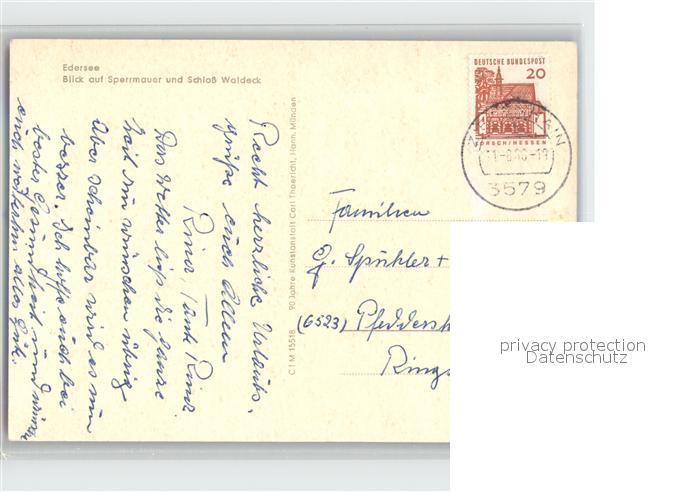 Edersee
Blick auf Sperrmauer und Schloß Waldeck
Recht herzliche Urlaubs-
grüße euch allen
Das Wetter ließ die ganze
Zeit zu wünschen übrig
Aber scheinbar wird es nun
besser. Ich hoffe euch bei
bester Gesundheit und wünsche
euch weiterhin alles Gute.
C I M 15518 90 Jahre Kunstanstalt Carl Thoericht, Hann. Münden
DEUTSCHE BUNDESPOST
20
LORSCH/HESSEN
3579
Familien
G. Spühler +
(6523) Pfeddersh
Rings
privacy protection
Datenschutz